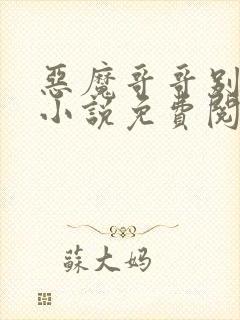 惡魔哥哥別
小說免費閱
蘇大妈